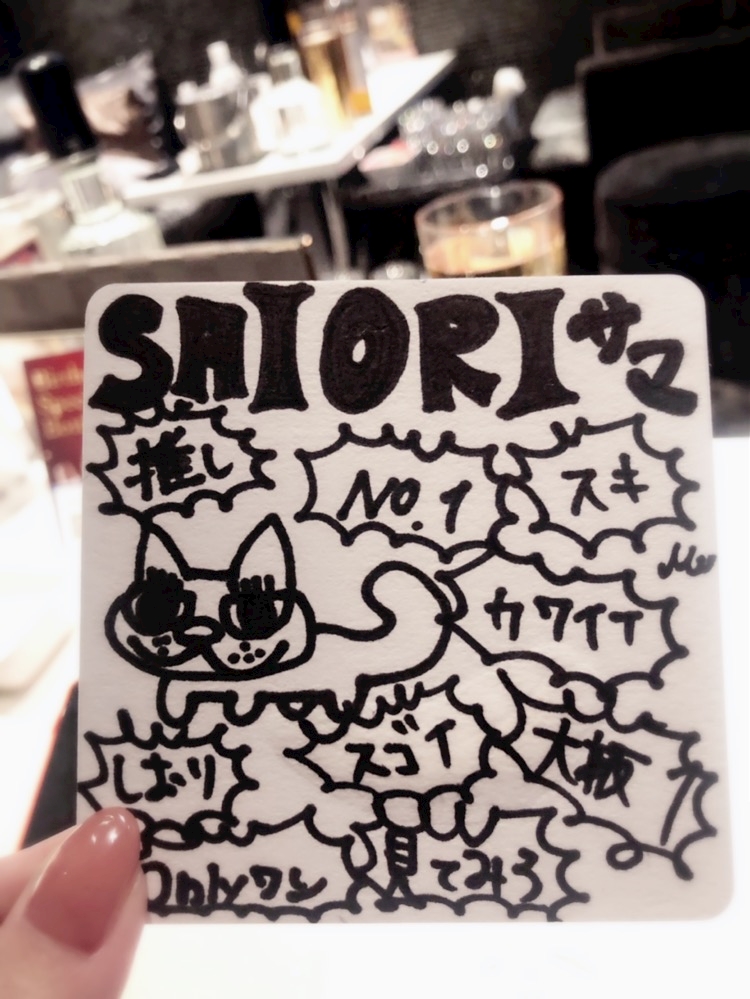 SHIORIサマ
推し
No.1
スキ
カワイイ
しおり
スゴイ
大阪
Onlyワン
見てみろ